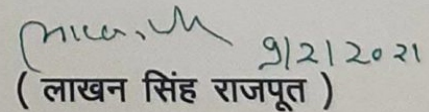 9/2/2021
( लाखन सिंह राजपूत )